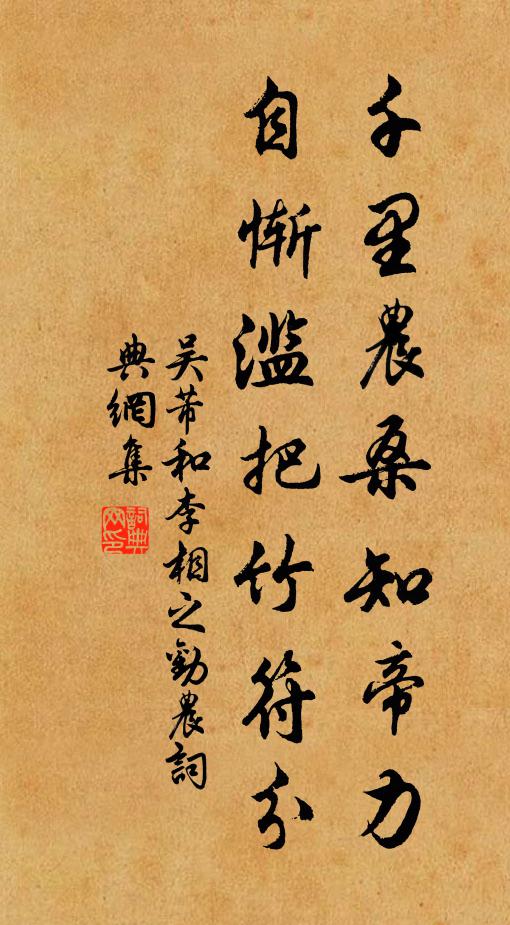 千里農桑知帝力
自慚濫把竹符分
吴芾和李相之勸農詞
典網集
詞典網印